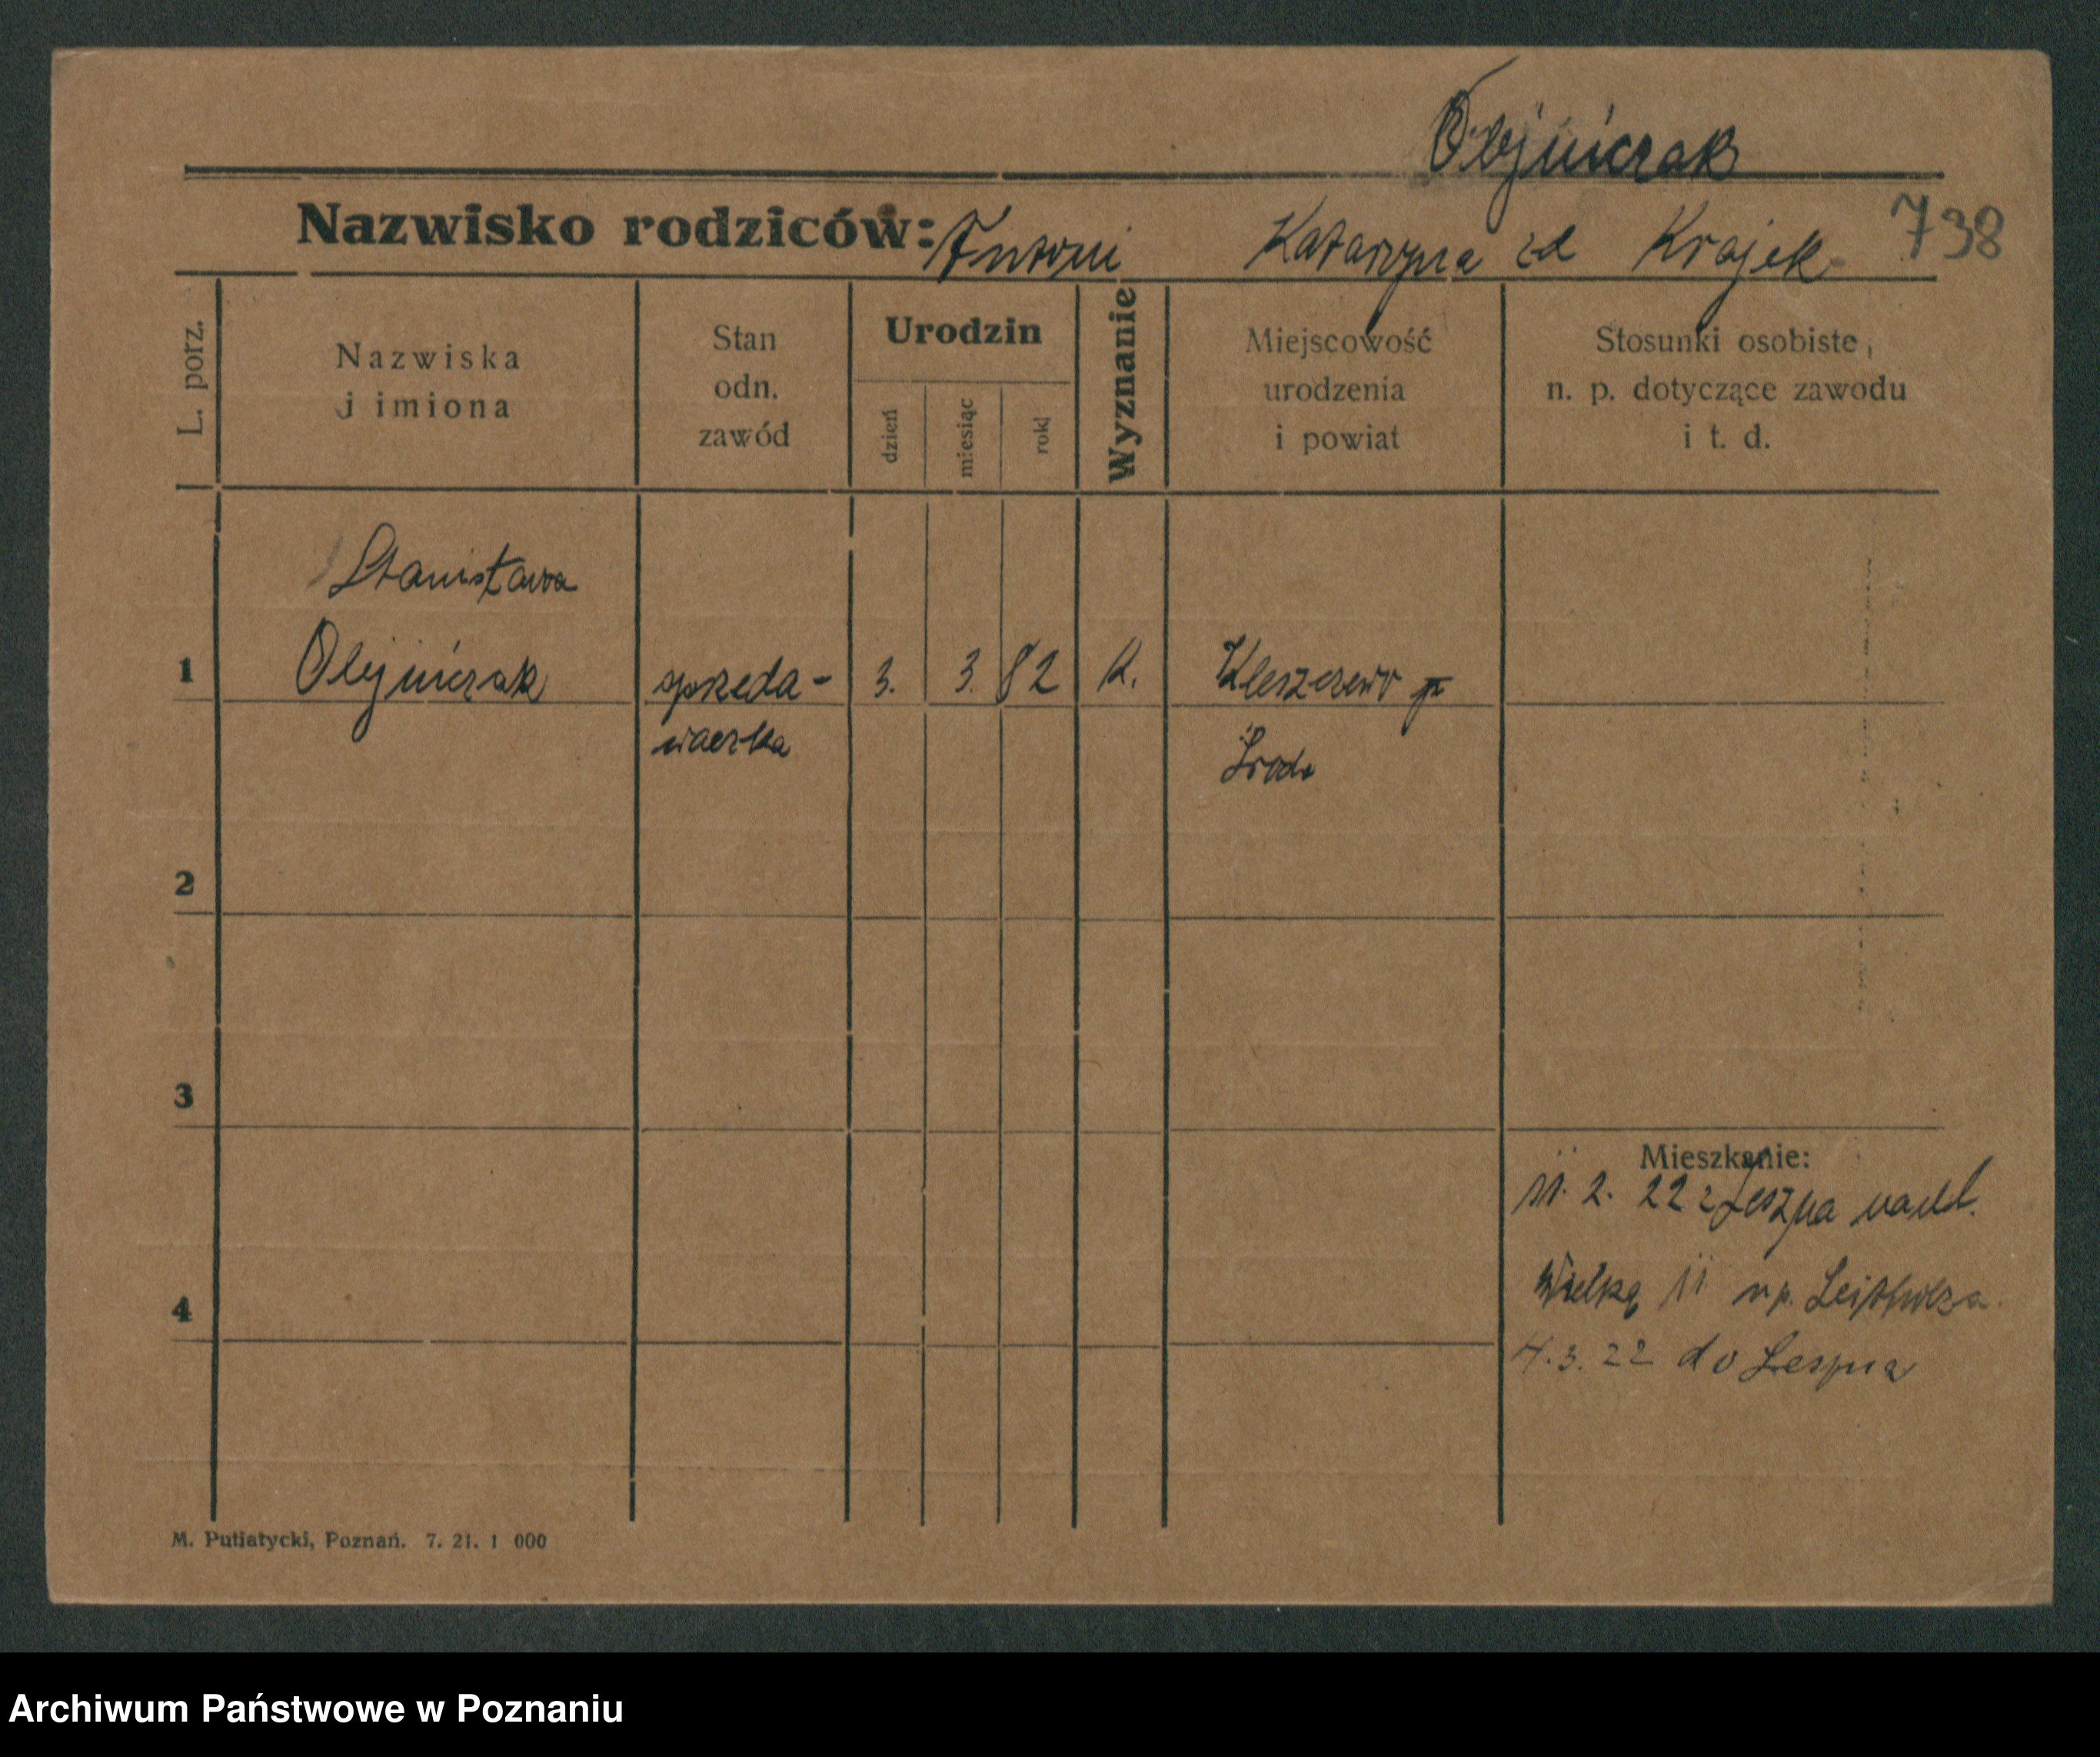 Olejniczak
Nazwisko rodziców: Antoni Katarzyna zd Krajek
738
L. porz.
Nazwiska
i imiona
Stan
odn.
zawód
Urodzin
dzień
miesiąc
rok
Wyznanie
Miejscowość
urodzenia
i powiat
Stosunki osobiste,
n. p. dotyczące zawodu
i t. d.
Stanisława
1 Olejniczak sprzeda- 3. 3. 82 K. Kleszczewo p
waczka Środa
2
3
Mieszkanie:
11. 2. 22 z Leszna
Wielka 11 u p.
4
4. 3. 22 do Leszna
M. Putiatycki, Poznań. 7. 21. 1 000
Archiwum Państwowe w Poznaniu